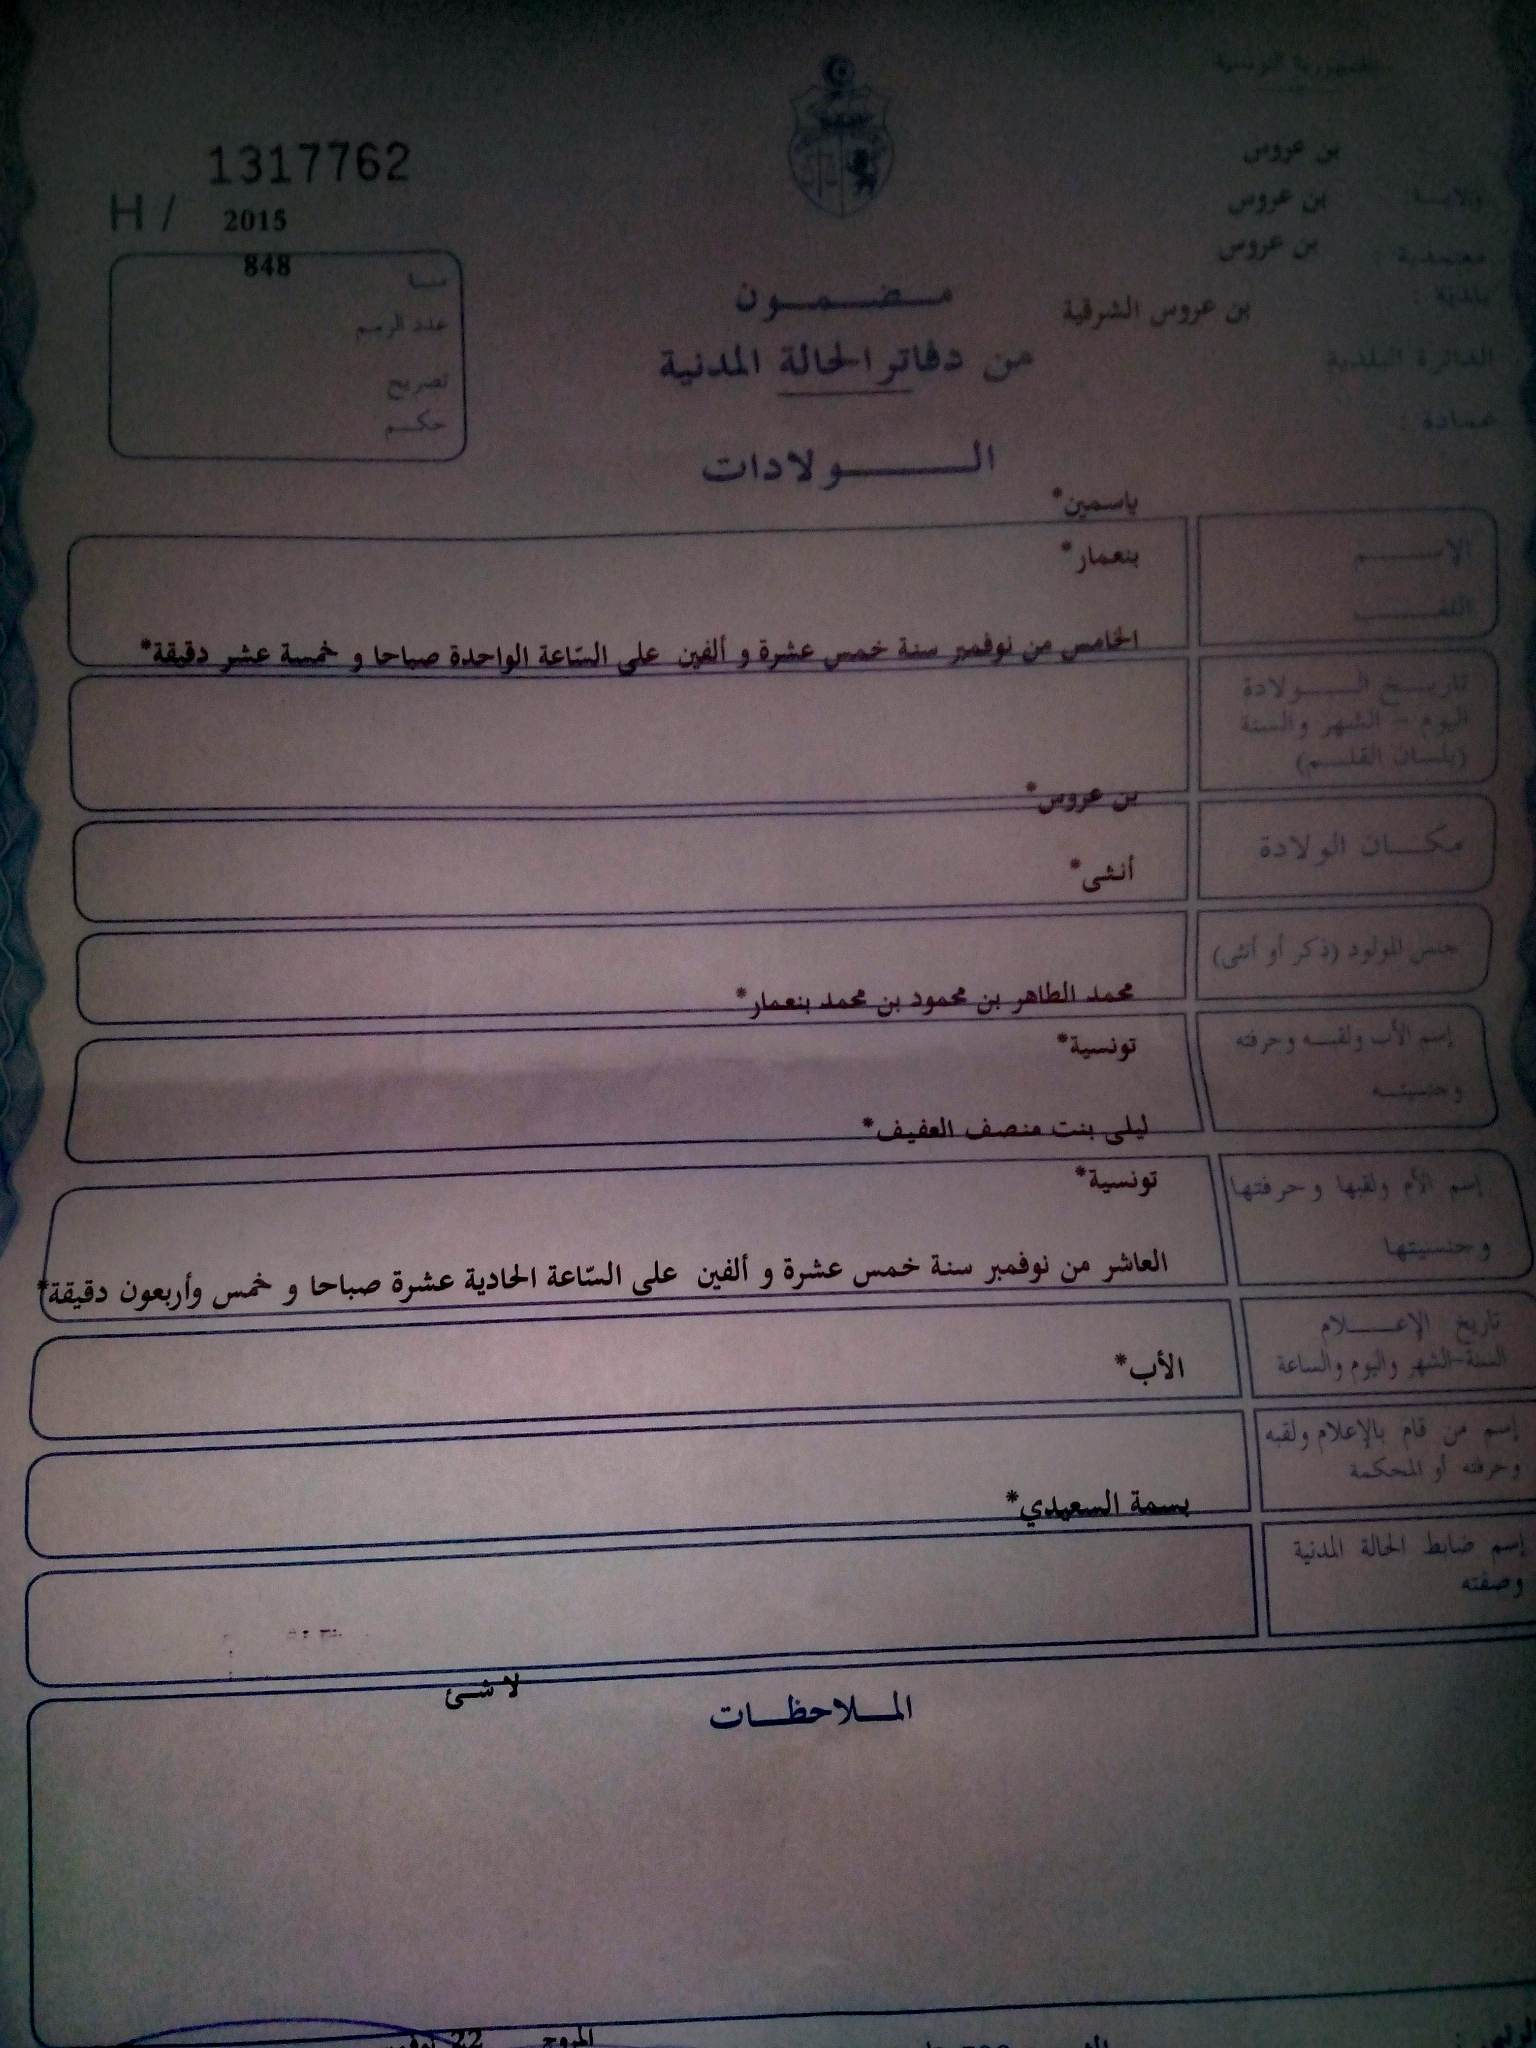 الجمهورية التونسية
1317762
H / 2015
848
بن عروس
ولايـــة بن عروس
معتمدية : بن عروس
بلدية :
بن عروس الشرقية
الدائرة البلدية
عمادة :
سنــا
عدد الرسم
تصريح
حكــم
مـضـمـون
من دفاتر الحالة المدنية
الـــولادات
ياسمين*
الإســـم
بنعمار*
اللقـــب
الخامس من نوفمبر سنة خمس عشرة و ألفين على السّاعة الواحدة صباحا و خمسة عشر دقيقة*
تاريـــخ الـــولادة
اليوم - الشهر والسنة
(بلسان القلــم)
بن عروس*
مكـــان الولادة
أنثى*
جنس المولود (ذكر أو أنثى)
محمد الطاهر بن محمود بن محمد بنعمار*
إسم الأب ولقبــه وحرفته
تونسية*
وجنسيتــه
ليلى بنت منصف العفيف*
إسم الأم ولقبها وحرفتها
تونسية*
وجنسيتها
العاشر من نوفمبر سنة خمس عشرة و ألفين على السّاعة الحادية عشرة صباحا و خمس وأربعون دقيقة*
تاريخ الإعـــلام
السنة-الشهر واليوم والساعة
الأب*
إسم من قام بالإعلام ولقبه
وحرفته أو المحكمة
بسمة السعيدي*
إسم ضابط الحالة المدنية
وصفته
لا شئ
المـــلاحظـــات
المروج 22